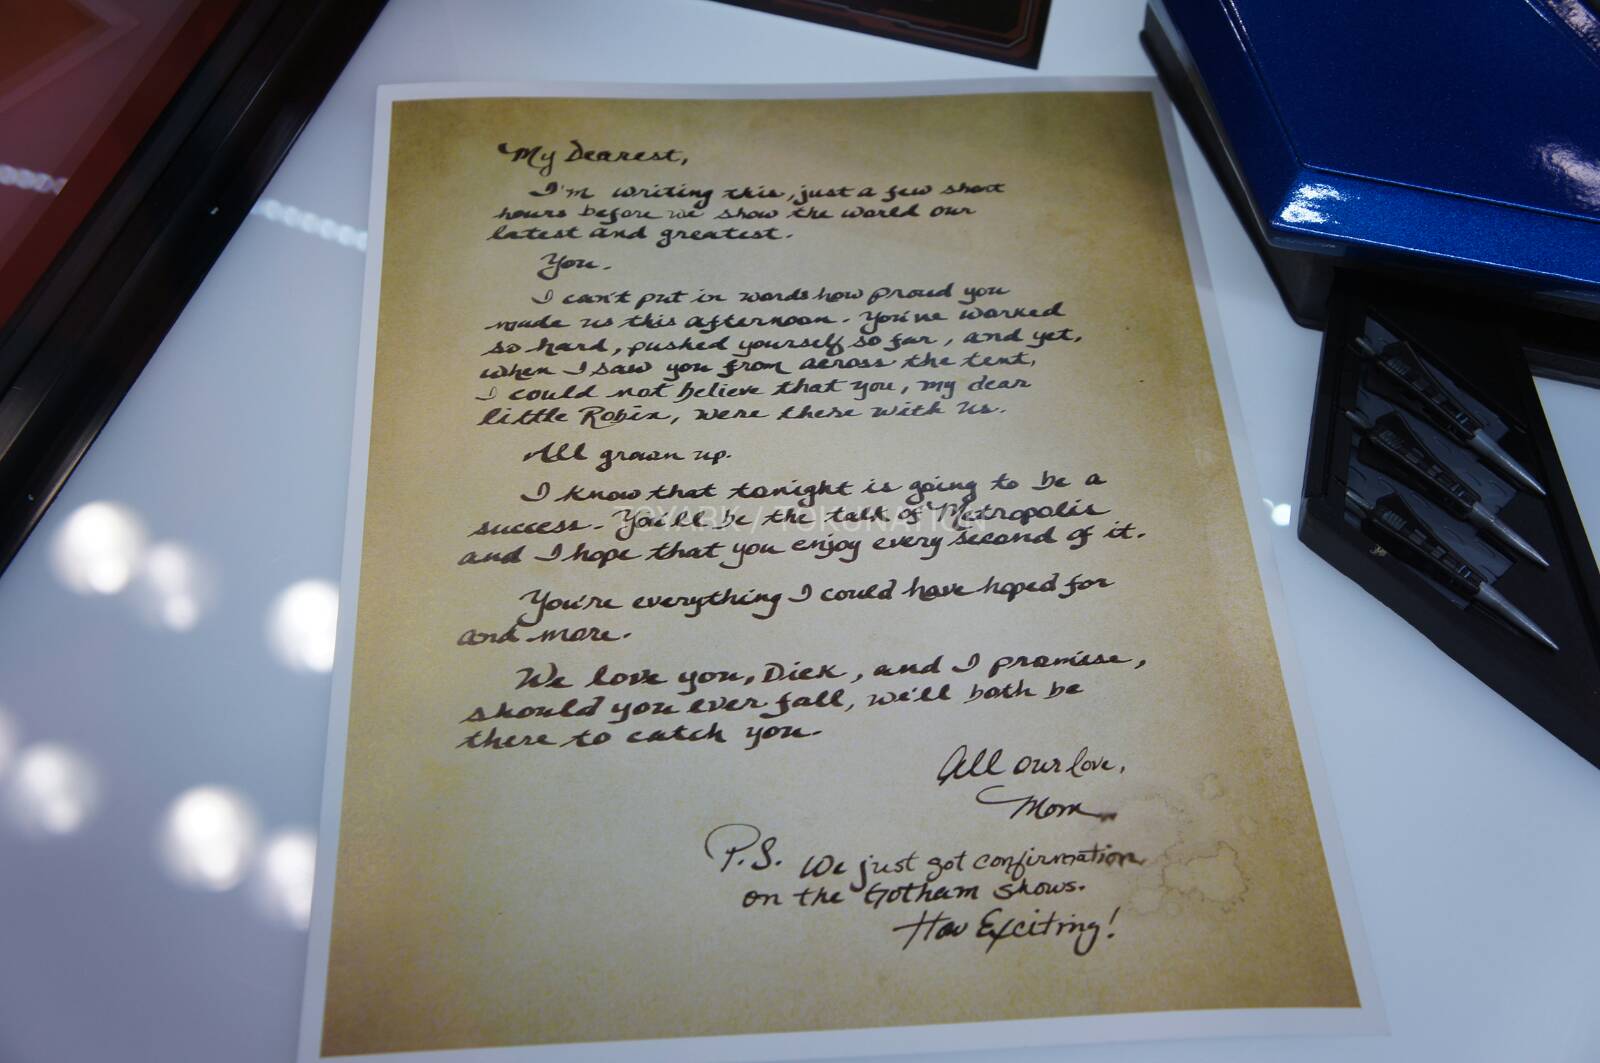 My Dearest,
I'm writing this, just a few short
hours before we show the world our
latest and greatest.
You.
I can't put in words how proud you
made us this afternoon. You've worked
so hard, pushed yourself so far, and yet,
when I saw you from across the tent,
I could not believe that you, my dear
little Robin, were there with us.
All grown up.
I know that tonight is going to be a
success. You'll be the talk of Metropolis
and I hope that you enjoy every second of it.
You're everything I could have hoped for
and more.
We love you, Dick, and I promise,
should you ever fall, we'll both be
there to catch you.
All our love,
Mom
P.S. We just got confirmation
on the Gotham shows.
How Exciting!